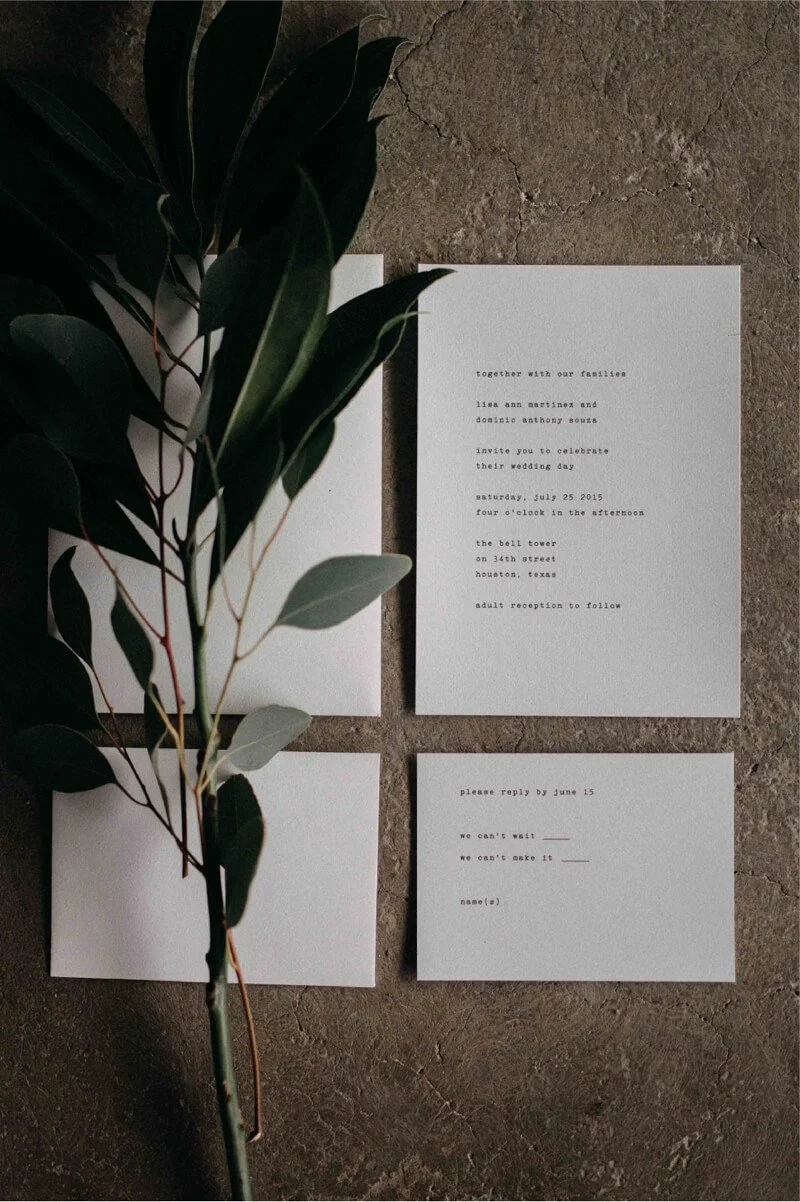 together with our families
lisa ann martinez and
dominic anthony souza
invite you to celebrate
their wedding day
saturday, july 25 2015
four o'clock in the afternoon
the bell tower
on 34th street
houston, texas
adult reception to follow
please reply by june 15
we can't wait ____
we can't make it ____
name(s)